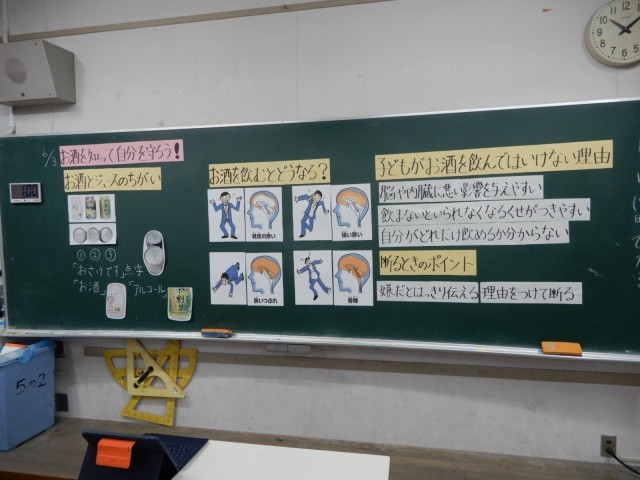 6/3
お酒を知って自分を守ろう！
お酒とジュースのちがい
①②③
「おさけです」点字
「お酒」
「アルコール」
1:00
お酒を飲むとどうなる？
軽度の酔い
強い酔い
酔いつぶれ
昏睡
子どもがお酒を飲んではいけない理由
脳や内臓に悪い影響を与えやすい
飲まないといられなくなるくせがつきやすい
自分がどれだけ飲めるか分からない
断るときのポイント
嫌だとはっきり伝える
理由をつけて断る
5の2